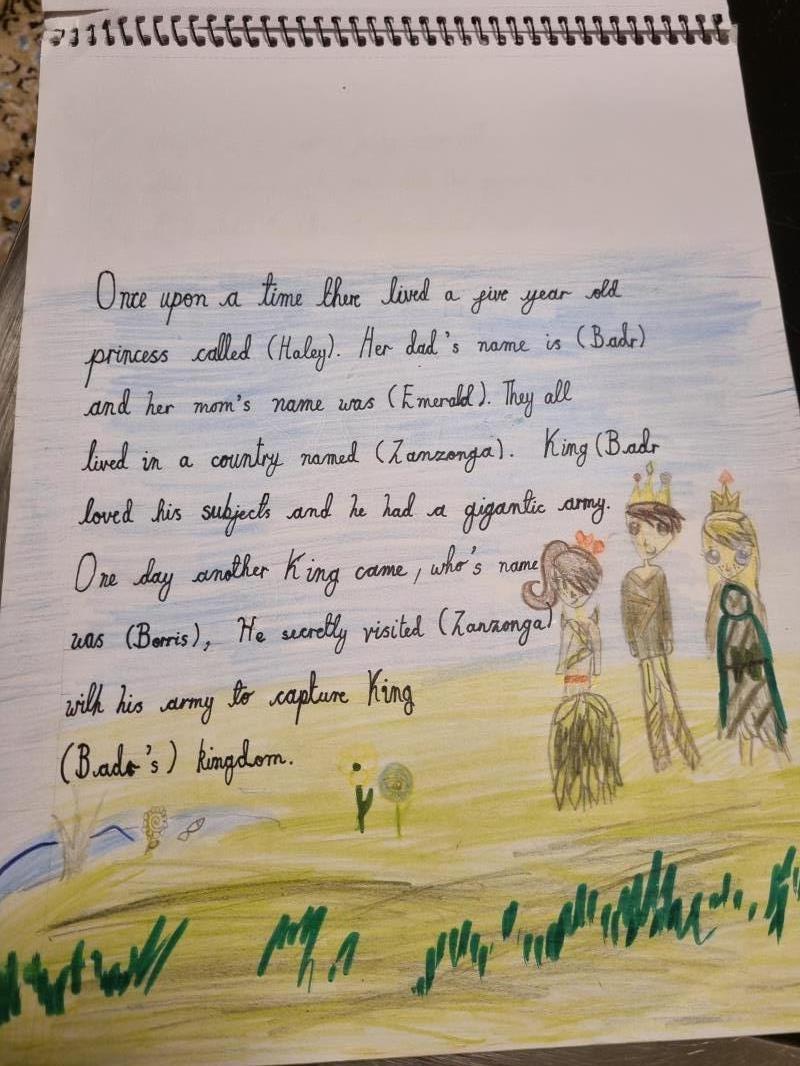 Once upon a time there lived a five year old
princess called (Haley). Her dad's name is (Badr)
and her mom's name was (Emerald). They all
lived in a country named (Zanzonga). King (Badr
loved his subjects and he had a gigantic army.
One day another King came, who's name
was (Borris), He secretly visited (Zanzonga)
with his army to capture King
(Badr's) kingdom.